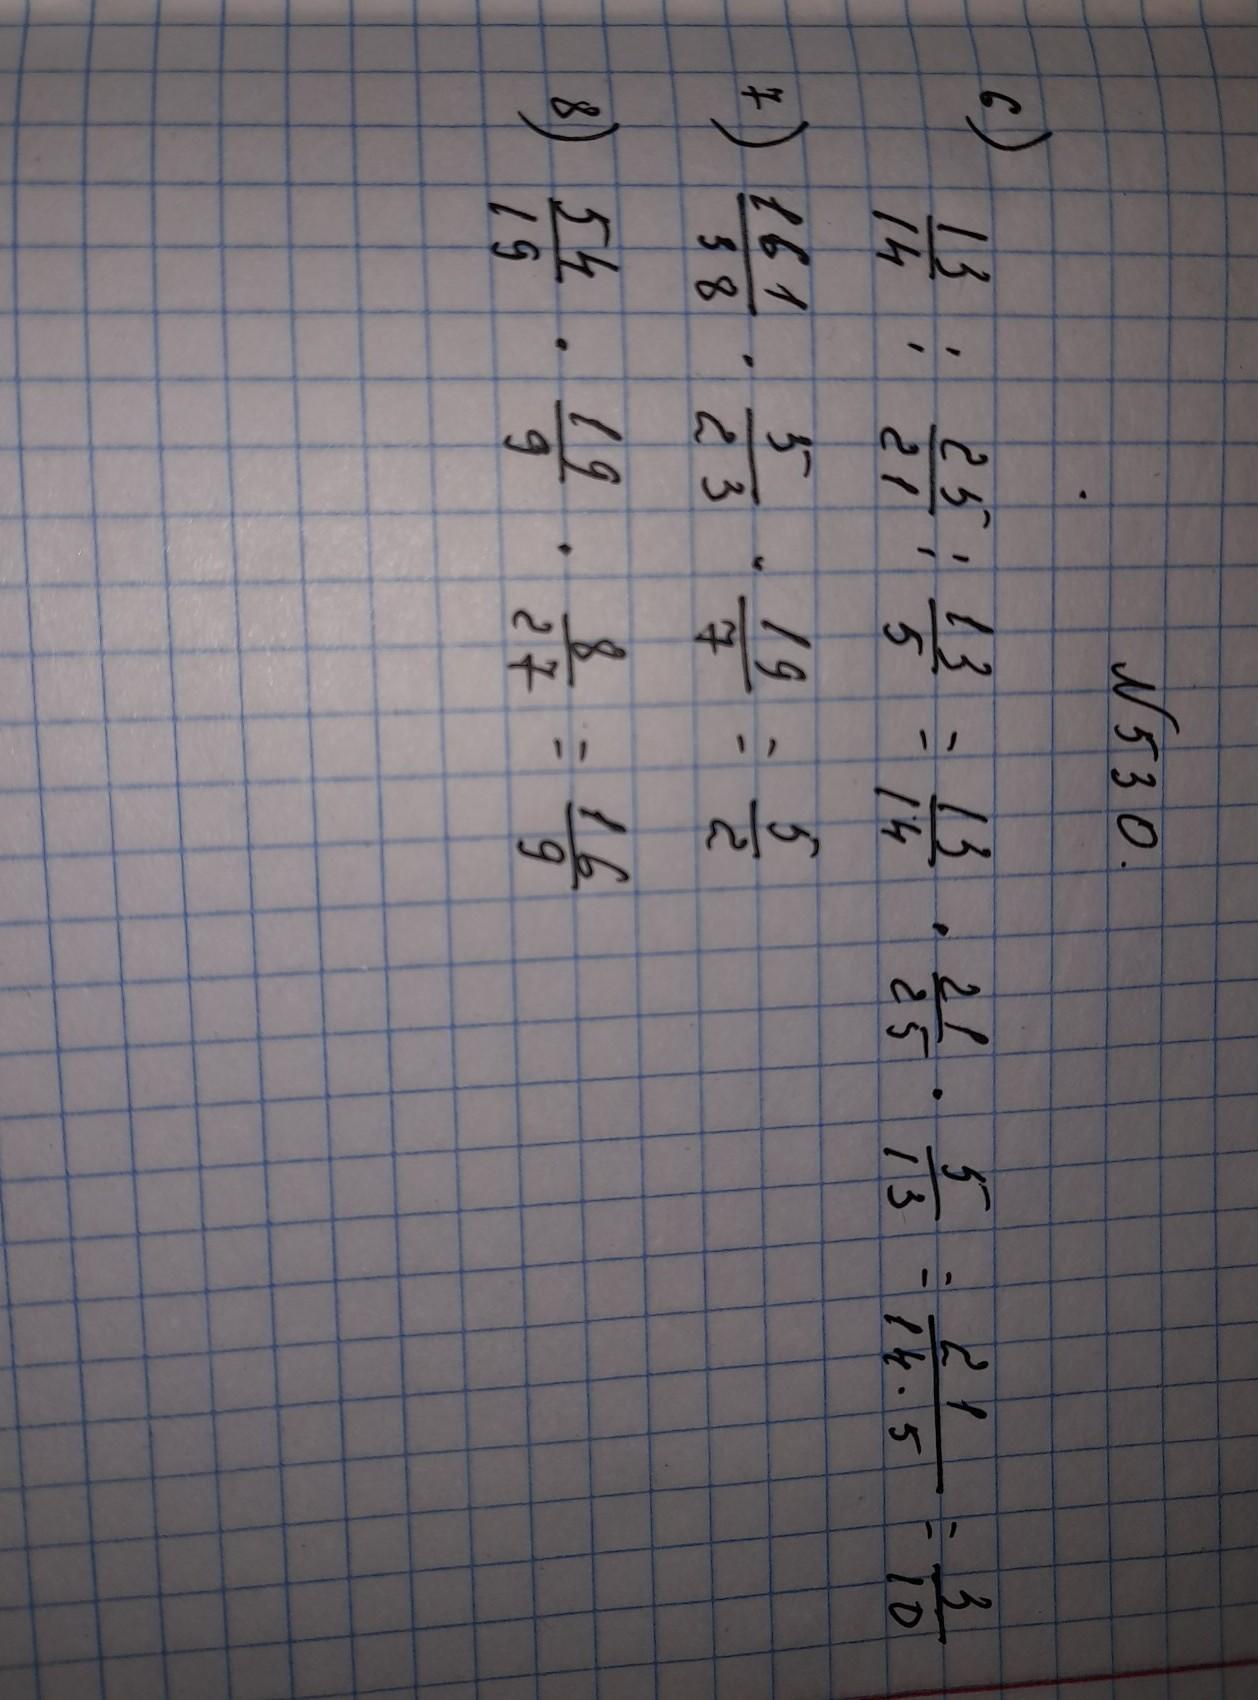 N530.
6) 13/14 : 25/21 : 13/5 = 13/14 · 21/25 · 5/13 = 21/14·5 = 3/10
7) 161/38 · 5/23 · 19/7 = 5/2
8) 54/19 · 19/9 · 8/27 = 16/9